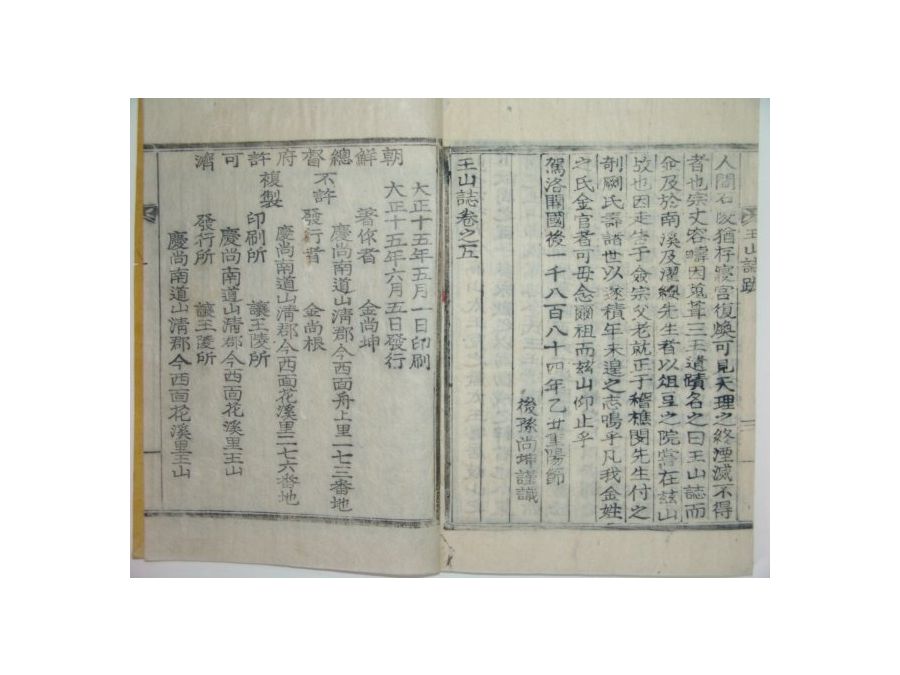 王山誌跋
人間石\[...\]猶存寢宮復煥可見天理之終湮滅不得
者也宗丈容疇因\[...\]三王遺蹟名之曰王山誌而
金及於南溪及濯纓先生者以俎豆之院嘗在玆山
故也因走告于僉宗父老就正于稽樵閔先生付之
剞劂氏壽諸世以遂積年未遑之志嗚乎凡我金姓
之氏金官者可毋念爾祖而玆山仰止乎
駕洛開國後一千八百八十四年乙丑重陽節
後孫尙坤謹識
王山誌卷之五
大正十五年五月一日印刷
大正十五年六月五日發行
著作者 金尙坤
慶尙南道山淸郡今西面舟上里一七三番地
發行者 金尙根
慶尙南道山淸郡今西面花溪里二七六番地
印刷所 讓王陵所
慶尙南道山淸郡今西面花溪里王山
發行所 讓王陵所
慶尙南道山淸郡今西面花溪里王山
不許複製
朝鮮總督府許可濟